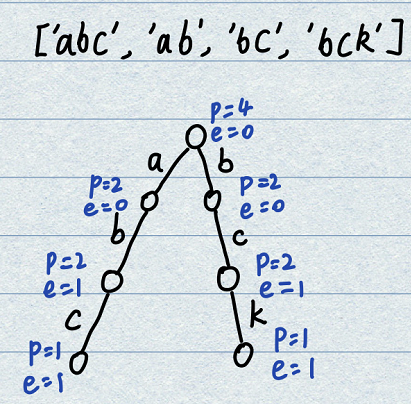 ['abc', 'ab', 'bc', 'bck']
p=4
e=0
a
b
p=2
e=0
p=2
e=0
b
c
p=2
e=1
p=2
e=1
c
k
p=1
e=1
p=1
e=1